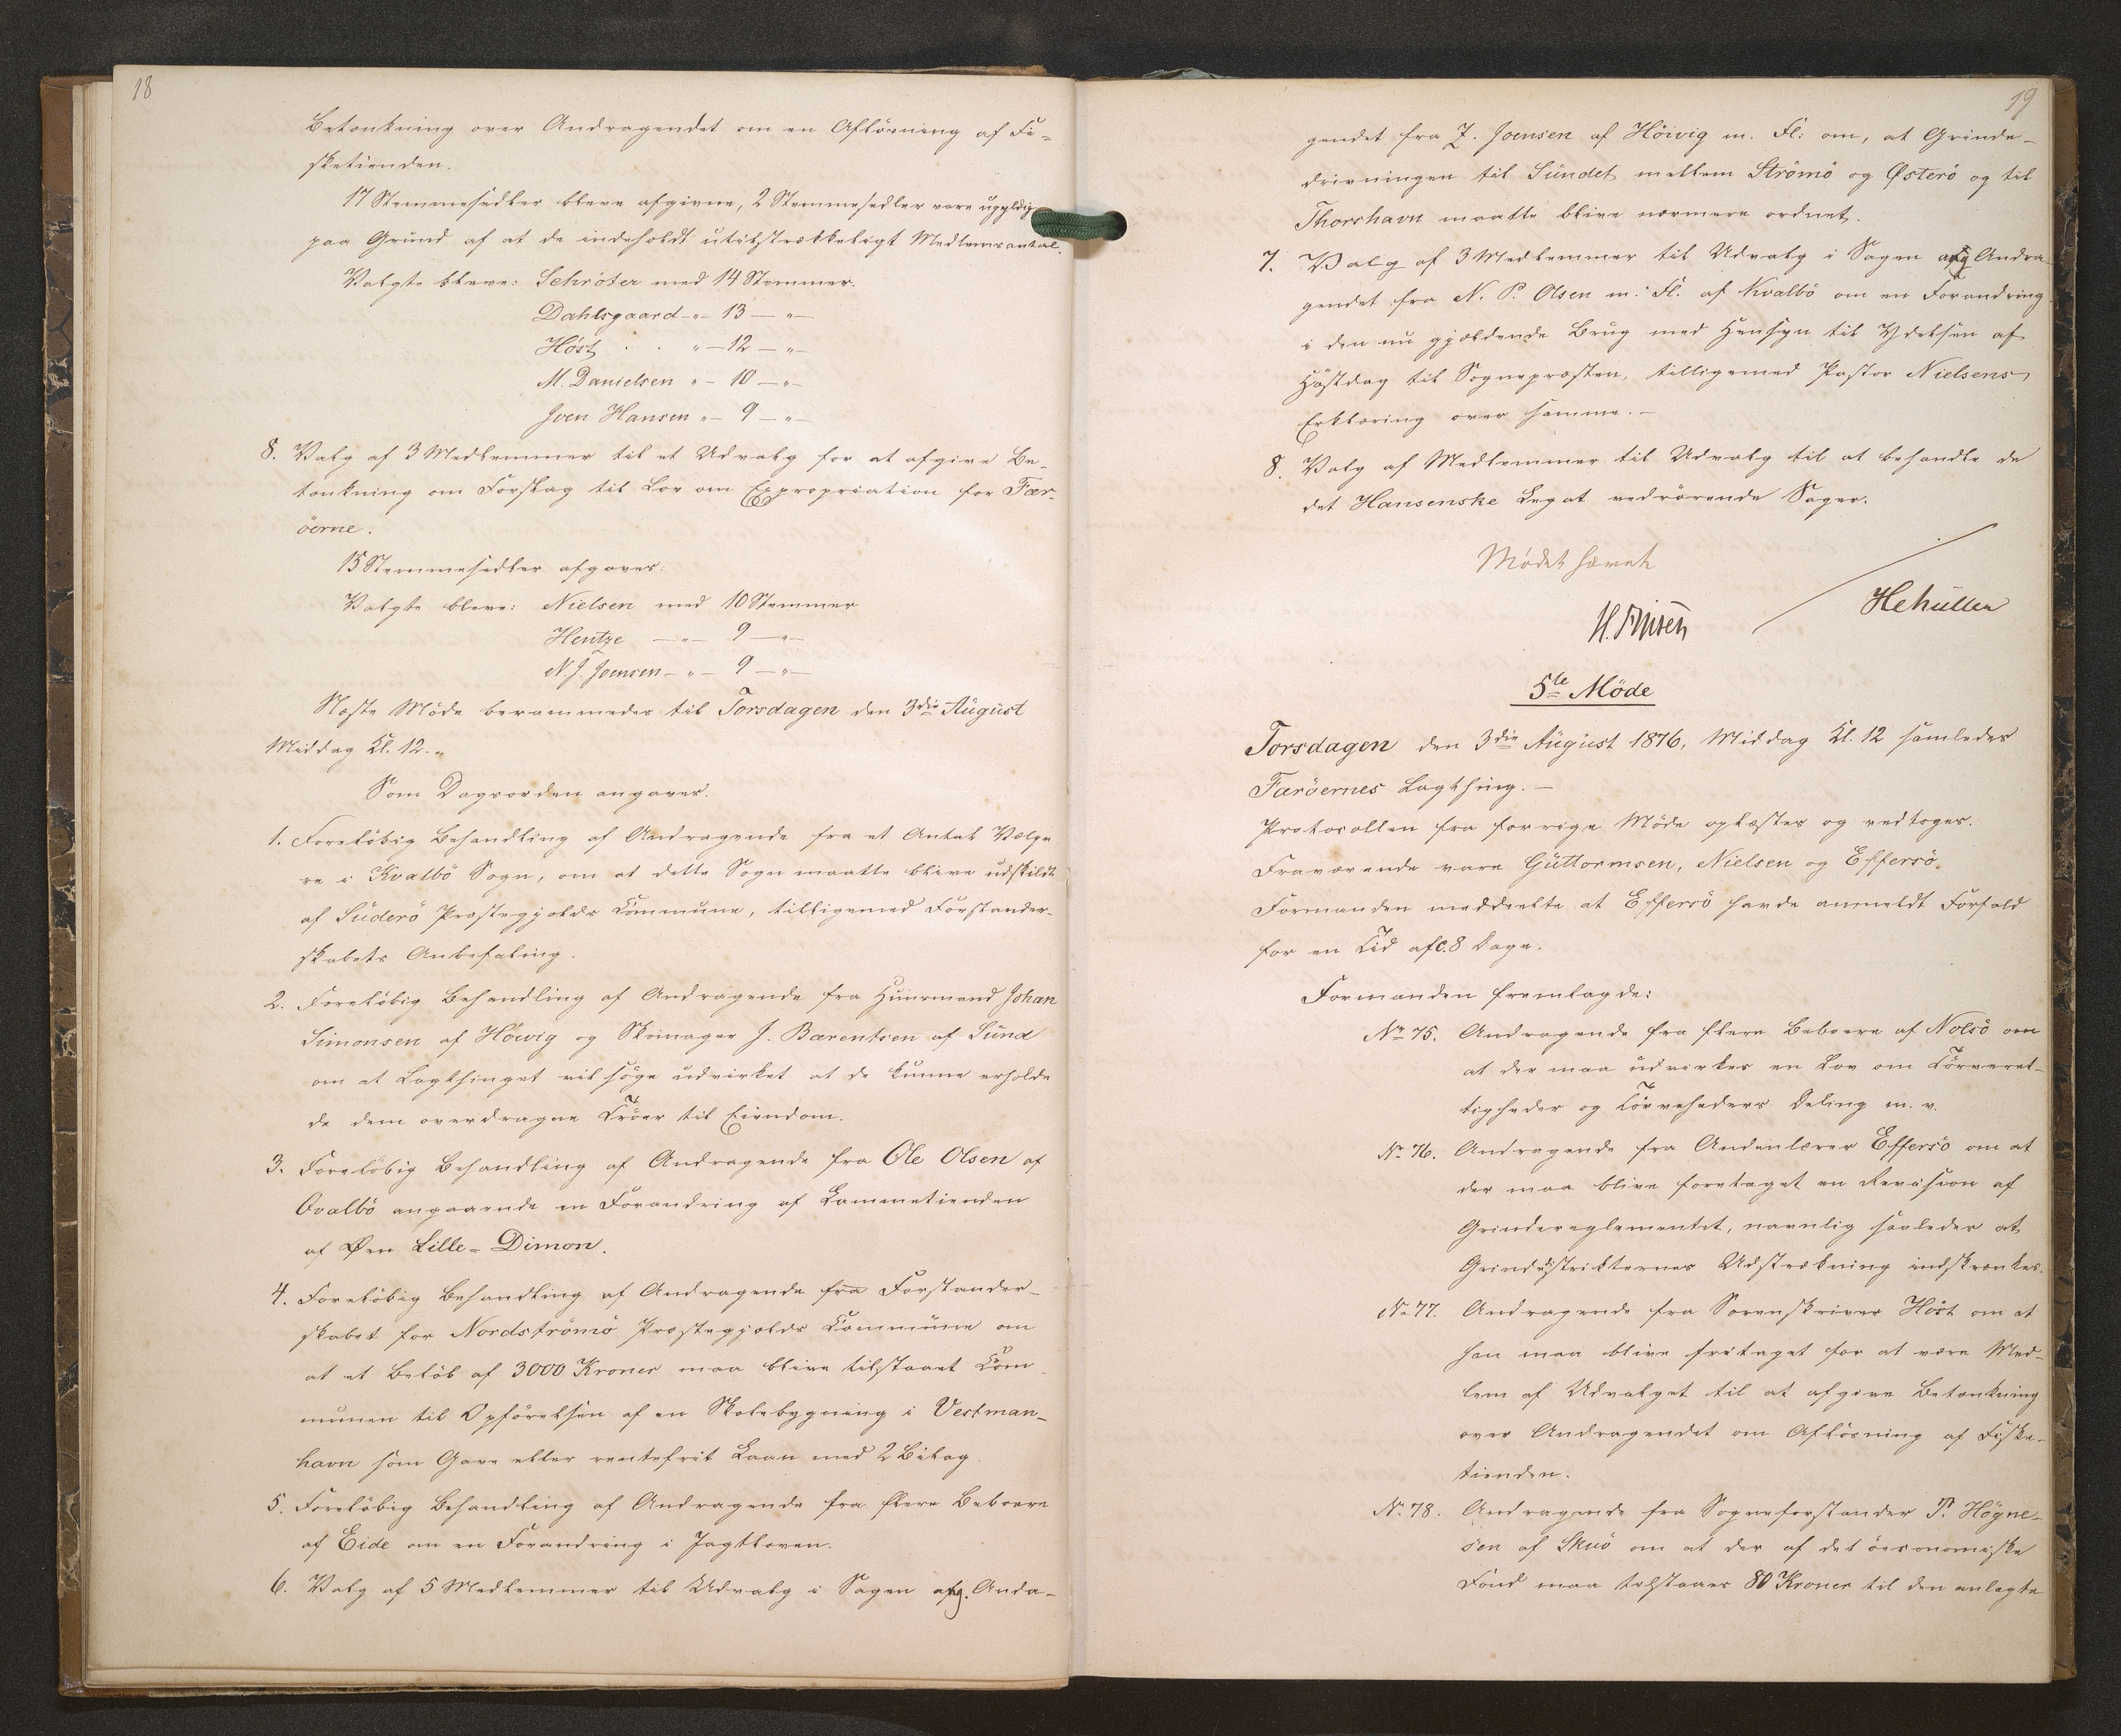 18
Betænkning over Andragendet om en Aflösning af Fi-
sketienden.
17 Stemmesedler bleve afgivne, 2 Stemmesedler vare ugyldige
paa Grund af at de indeholdt utilstrækkeligt Medlemsantal.
Valgte bleve: Schröter med 14 Stemmer.
Dahlsgaard -"- 13 -"-
Höst . . "- 12 -"-
M. Danielsen "- 10 -"-
Joen Hansen "- 9 -"-
8. Valg af 3 Medlemmer til et Udvalg for at afgive Be-
tænkning om Forslag til Lov om Expropriation for Fær-
öerne.
15 Stemmesedler afgaves:
Valgte bleve: Nielsen med 10 Stemmer
Hentze -"- 9 -"-
N. J. Joensen -"- 9 -"-
Næste Möde berammedes til Torsdagen den 3die August
Middag Kl. 12. "
Som Dagsorden angaves:
1. Forelöbig Behandling af Andragende fra et Antal Vælge-
re i Kvalbö Sogn, om at dette Sogn maatte blive udskildt
af Süderö Præstegjælds Commune, tilligemed Forstander-
skabets Anbefaling.
2. Forelöbig Behandling af Andragende fra Huusmand Johan
Simonsen af Höivig og Skomager J. Bærentsen af Sund
om at Lagthinget vil söge udvirket at de kunne erholde
de dem overdragne Tröer til Eiendom.
3. Forelöbig Behandling af Andragende fra Ole Olsen af
Ovalbö angaaende en Forandring af Lammetienden
af Øen Lille-Dimon.
4. Forelöbig Behandling af Andragende fra Forstander-
skabet for Nordströmö Præstegjælds Commune om
at et Belöb af 3000 Kroner maa blive tilstaaet Com-
munen til Opförelsen af en Skolebygning i Vestman-
havn som Gave eller rentefrit Laan med 2 Bilag.
5. Forelöbig Behandling af Andragende fra flere Beboere
af Eide om en Forandring i Jagtloven.
6. Valg af 5 Medlemmer til Udvalg i Sagen ang. Anda-
19
gendet fra Z. Joensen af Höivig m. Fl: om, at Grinde-
drivningen til Sundet mellem Strömö og Østerö og til
Thorshavn maatte blive nærmere ordnet.
7. Valg af 3 Medlemmer til Udvalg i Sagen ang Andra-
gendet fra N. P. Olsen m. Fl. af Kvalbö om en Forandring
i den nu gjældende Brug med Hensyn til Ydelsen af
Höstdag til Sognepræsten, tilligemed Pastor Nielsens
Erklæring over samme. -
8. Valg af Medlemmer til Udvalg til at behandle de
det Hansenske Legat vedrörende Sager.
Mødet hævet
H. Finsen
5te Möde
Torsdagen den 3die August 1876, Middag Kl. 12 samledes
Færöernes Lagthing. -
Protocollen fra forrige Möde oplæstes og vedtoges.
Fraværende vare Guttormsen, Nielsen og Effersö.
Formanden meddeelte at Effersö havde anmeldt Forfald
for en Tid af c. 8 Dage.
Formanden fremlagde:
No 75. Andragende fra flere Beboere af Nolsö om
at der maa udvirkes en Lov om Törveret-
tigheder og Törveheders Deling m. v.
No 76. Andragende fra Andenlærer Effersö om at
der maa blive foretaget en Revision af
Grindereglementet, navnlig saaledes at
Grindedistrikternes Udstrækning indskrænkes.
No 77. Andragende fra Sorenskriver Höst om at
han maa blive fritaget for at være Med-
lem af Udvalget til at afgive Betænkning
over Andragendet om Aflösning af Fiske-
tienden.
No 78. Andragende fra Sogneforstander P. Högne-
sen af Skuö om at der af det öconomiske
Fond maa tilstaaes 80 Kroner til den anlagte